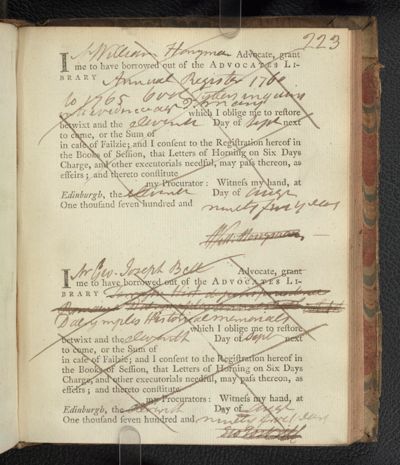 223
I Mr William Honyman Advocate, grant
me to have borrowed out of the ADVOCATES LI-
BRARY Annual Register 1760
to 1765
which I oblige me to restore
betwixt and the eleventh Day of Sept next
to come, or the Sum of
in case of Failzie; and I consent to the Registration hereof in
the Books of Session, that Letters of Horning on Six Days
Charge, and other executorials needful, may pass thereon, as
effeirs; and thereto constitute
my Procurator: Witness my hand, at
Edinburgh, the eleventh Day of
One thousand seven hundred and ninety five years
Wm. Honyman
I Mr Geo. Joseph Bell Advocate, grant
me to have borrowed out of the ADVOCATES LI-
BRARY
Dalrymples Historical memorials
which I oblige me to restore
betwixt and the eleventh Day of Sept next
to come, or the Sum of
in case of Failzie; and I consent to the Registration hereof in
the Books of Session, that Letters of Horning on Six Days
Charge, and other executorials needful, may pass thereon, as
effeirs; and thereto constitute
my Procurators: Witness my hand, at
Edinburgh, the eleventh Day of
One thousand seven hundred and ninety five years
Geo Jos Bell